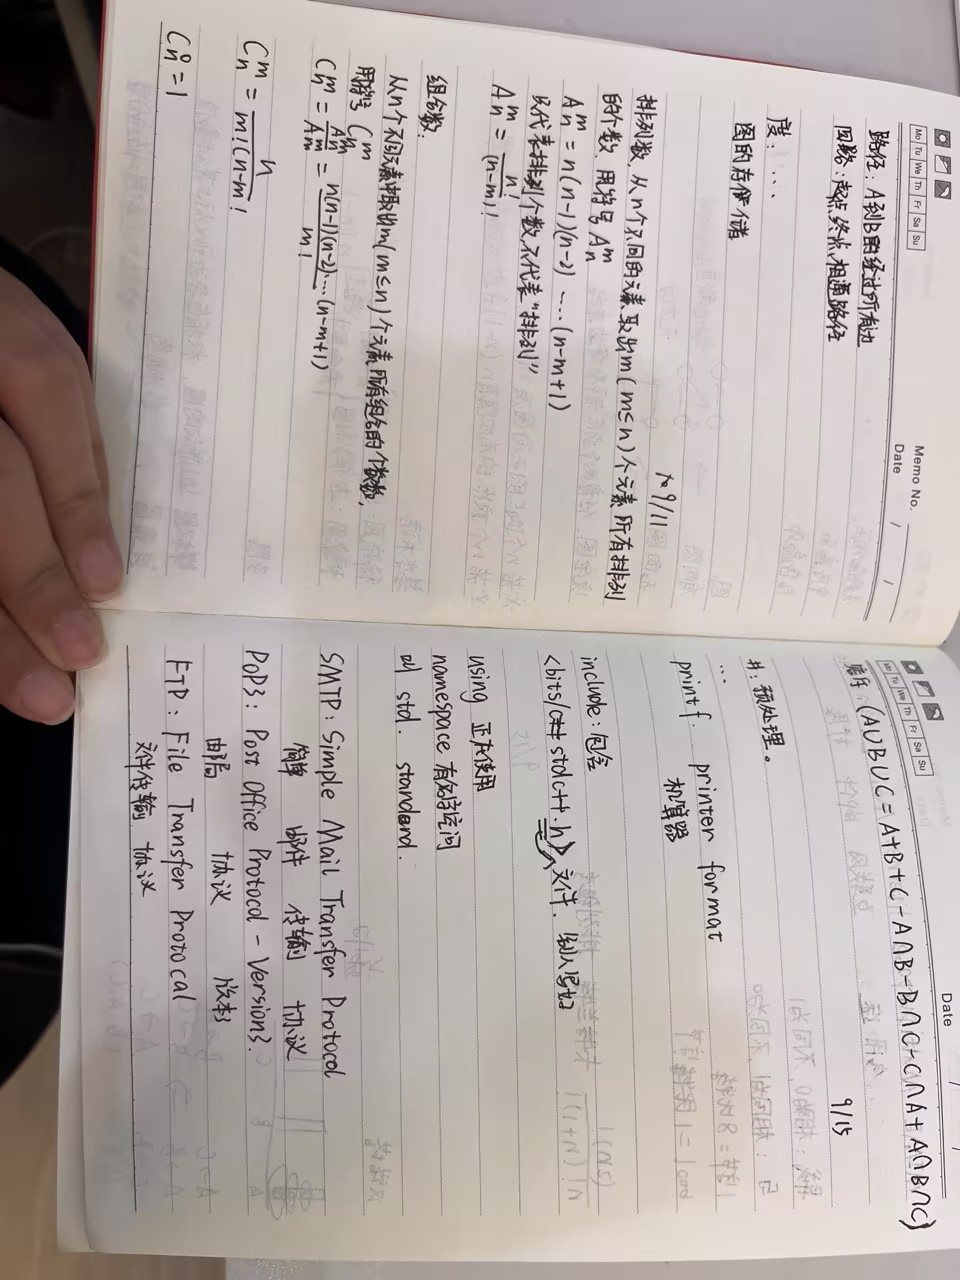 Memo No.
Mo Tu We Th Fr Sa Su
Date / /
路径：A到B的经过所有边
回路：起点，终点，相通路径
度：....
图的存储
9/11
排列数，从n个不同的元素取出m(m≤n)个元素所有排列
的个数，用符号 Aₙᵐ
Aₙᵐ = n(n-1)(n-2) ... (n-m+1)
只代表排列个数,不代表"排列"
Aₙᵐ = n!/(n-m)!
组合数：
从n个不同元素中取出m(m≤n)个元素所有组合的个数，
用符号 Cₙᵐ
Cₙᵐ = Aₙᵐ/Aₘ = n(n-1)(n-2)...(n-m+1)/m!
Cₙᵐ = n/m!(n-m)!
Cₙ⁰ = 1
Date / /
Mo Tu We Th Fr Sa Su
(A∪B∪C = A+B+C-A∩B-B∩C-C∩A+A∩B∩C)
9/15
#：预处理。
...
printf. printer format
include：包含
<bits/stdc++.h> 文件. 别人写好
using 正在使用
namespace 有名字空间
std. standard.
SMTP：Simple Mail Transfer Protocol
简单 邮件 传输 协议
PoP3：Post Office Protocol - Version3.
邮局 协议 版本3
FTP：File Transfer Protocal
文件传输 协议